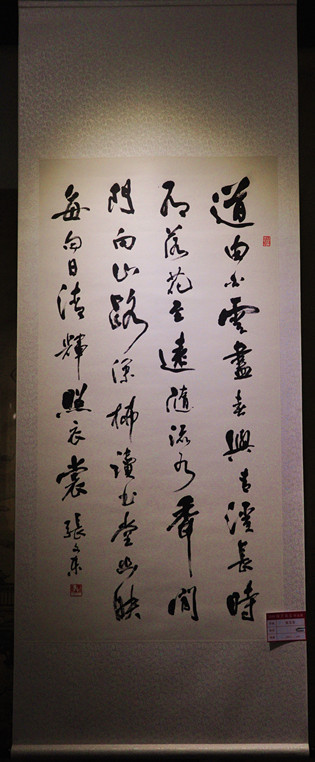 道由白雲盡春與青溪長時
有落花至遠隨流水香閒
門向山路深柳讀書堂幽映
每白日清輝照衣裳 張文東